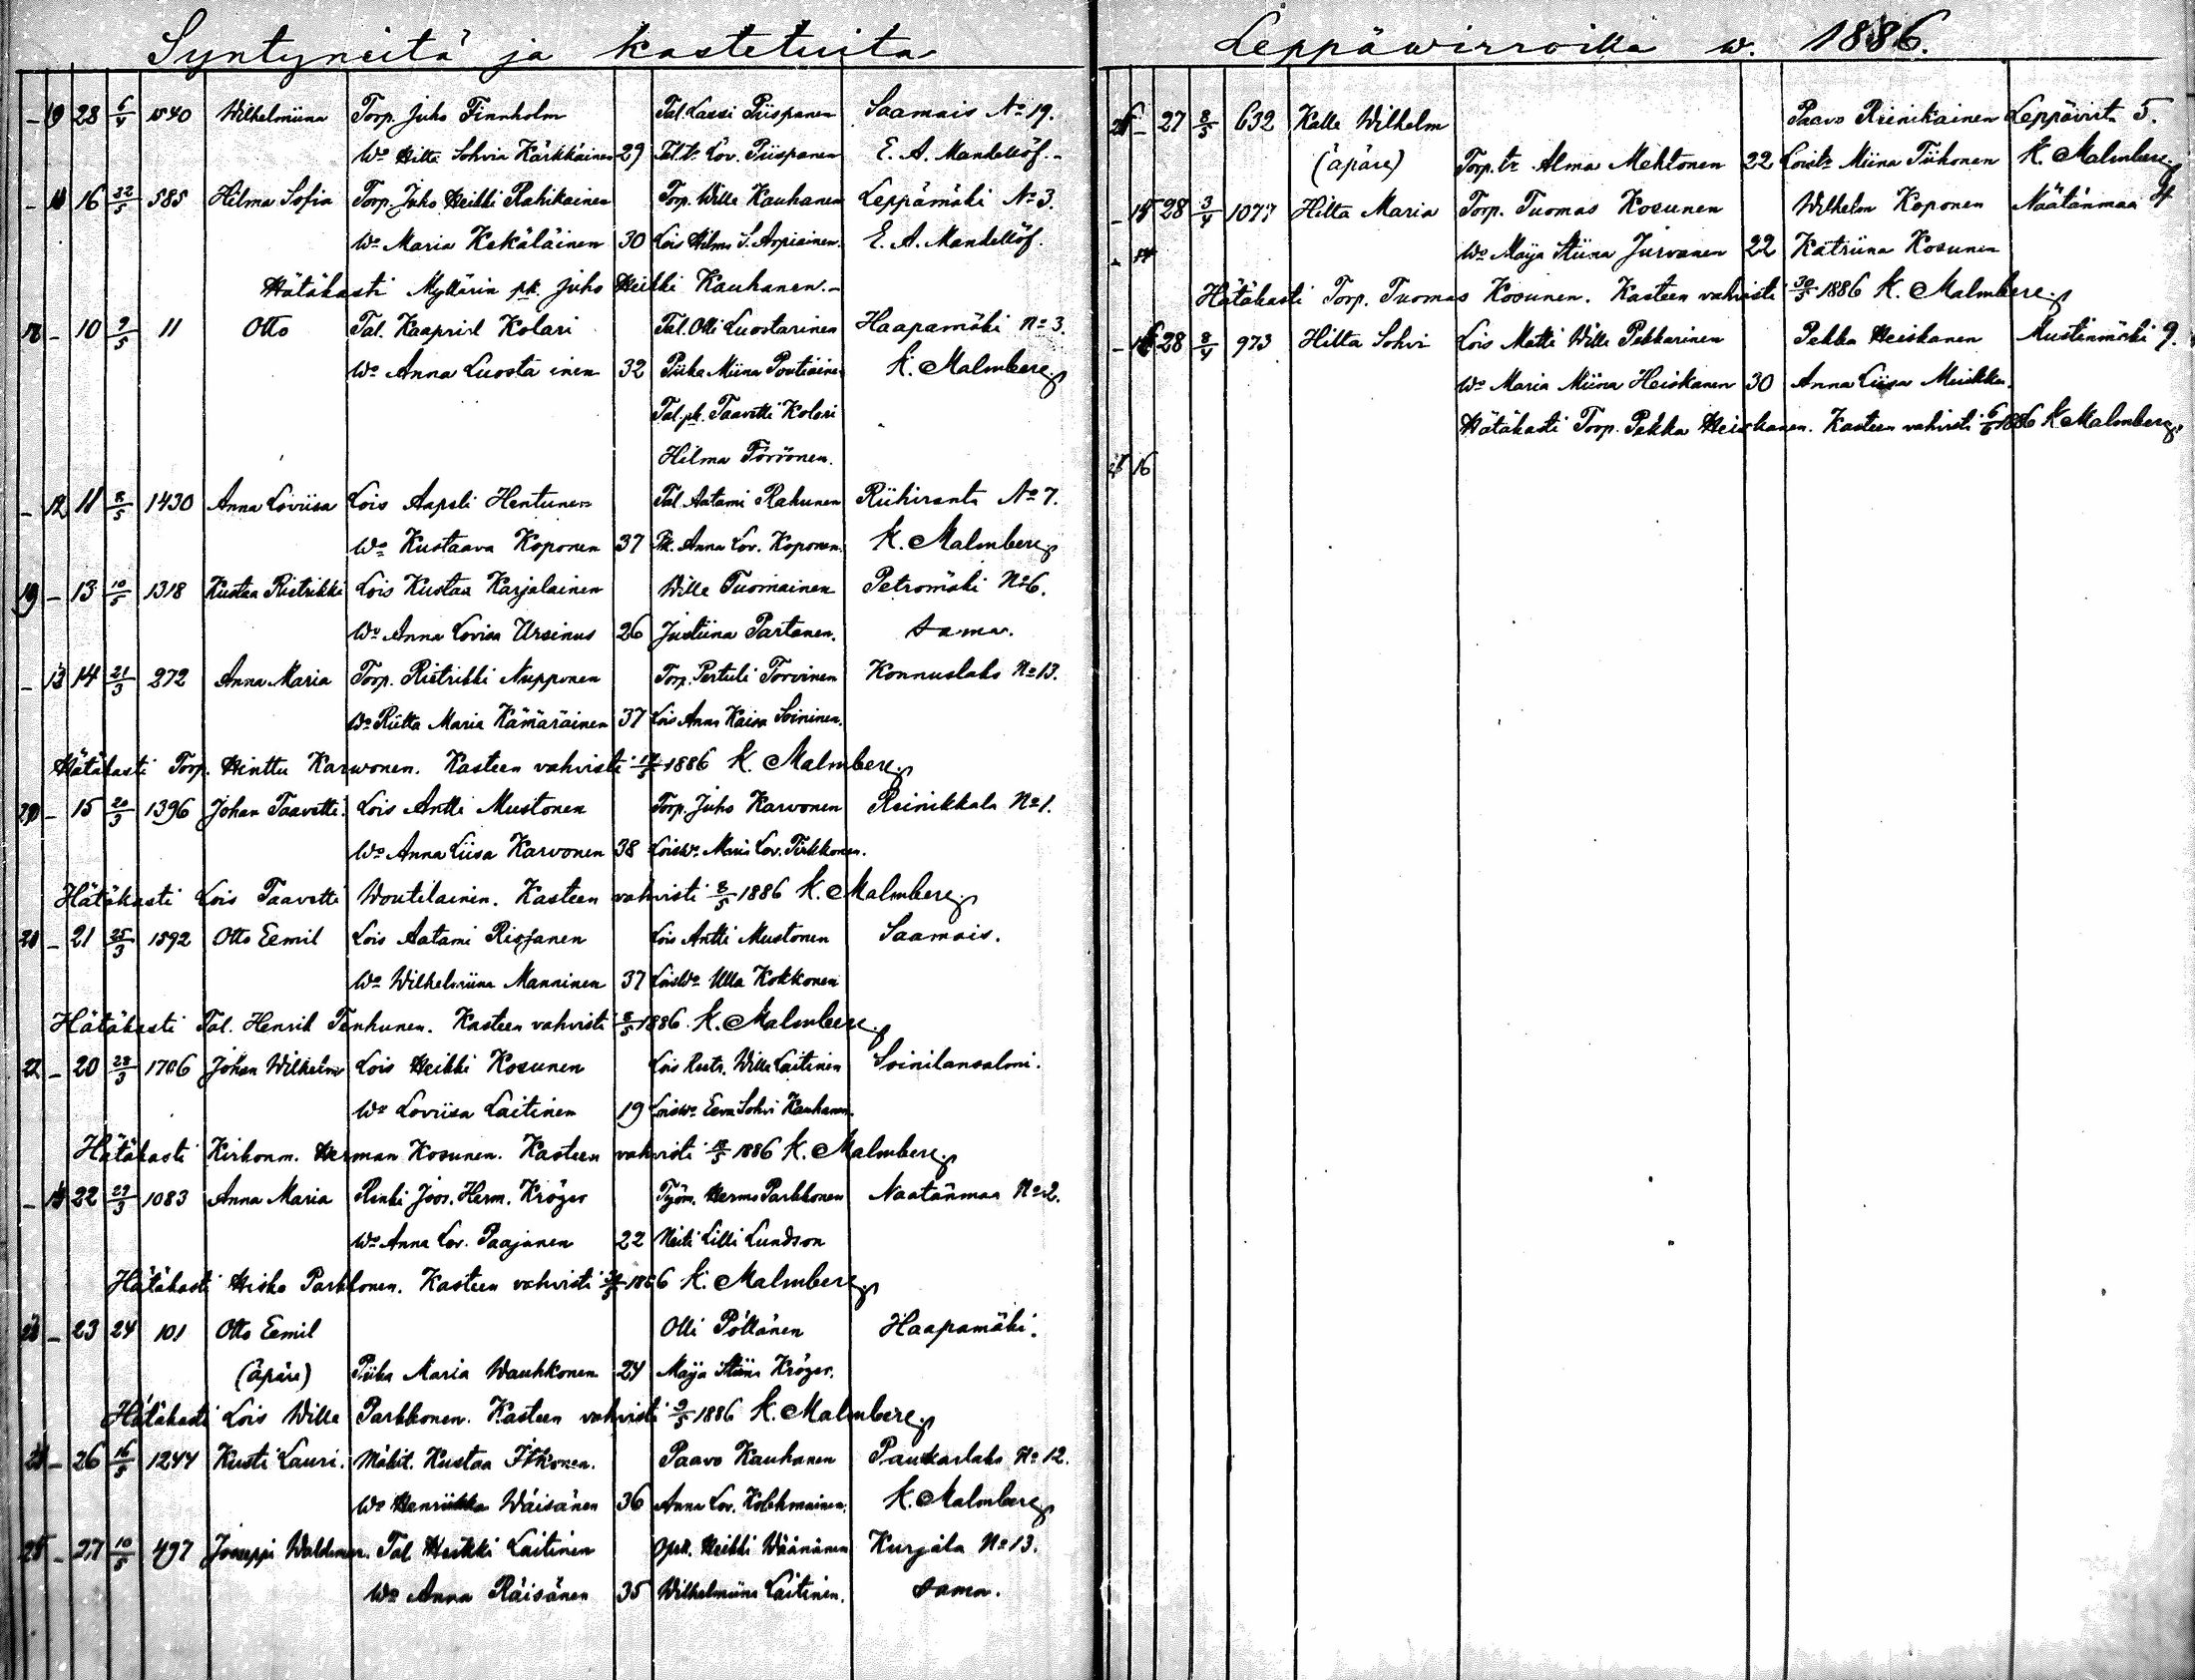 Syntyneitä ja kastetuita
19 28 6/4 1540 Wilhelmiina Torp. Juho Finnholm Tal. Lassi Piispanen Saamais No 19.
Wo Hilta Sohvia Kärkkäinen 29 Tal. tr Lov. Piispanen E. A. Mandellöf.
16 22/5 585 Hilma Sofia Torp. Juho Heikki Rahikainen Torp. Wille Kauhanen Leppämäki No 3.
Wo Maria Kekäläinen 30 Lois Hilma S. Arpiainen. E. A. Mandellöf.
Hätäkasti Myllärin pk. Juho Heikki Kauhanen.
10 9/5 11 Otto Tal. Kaapriel Kolari Tal. Olli Luostarinen Haapamäki No 3.
Wo Anna Luosta inen 32 Piika Miina Poutiainen K. Malmberg
Tal. pk. Taavetti Kolari
Hilma Törrönen.
12 11 8/5 1430 Anna Loviisa Lois Aapeli Hentunen Tal. Aatami Rahunen Riihiranta No 7.
Wo Kustaava Koponen 37 Pk. Anna Lov. Koponen. K. Malmberg
19 13 10/5 1318 Kustaa Ristrikki Lois Kustaa Karjalainen Wille Tuomainen Petromäki No 6.
Wo Anna Lovisa Ursinus 26 Justiina Partanen. sama.
13 14 21/3 272 Anna Maria Torp. Ristrikki Nupponen Torp. Pertuli Torvinen Konnuslaks No 13.
Wo Riitta Maria Kämäräinen 37 Lois Anna Kaisa Soininen.
Hätäkasti Torp. Hinttu Karwonen. Kasteen vahvisti 1886 K. Malmberg
20 15 20/3 1396 Johan Taavetti. Lois Antti Mustonen Torp. Juho Karvonen Reinikkala No 1.
Wo Anna Liisa Karvonen 38 Loiswo Maria Lov. Pirkkonen.
Hätäkasti Lois Taavetti Woutilainen. Kasteen vahvisti 8/5 1886 K. Malmberg
21 21 25/3 1592 Otto Eemil Lois Aatami Risjanen Lois Antti Mustonen Saamais.
Wo Wilhelmiina Manninen 37 Loiswo Ulla Kokkonen
Hätäkasti Tal. Henrik Tenhunen. Kasteen vahvisti 8/5 1886. K. Malmberg
22 20 28/3 1706 Johan Wilhelm Lois Heikki Kosunen Lois Wille Laitinen Soinilansalmi.
Wo Loviisa Laitinen 19 Loiswo Eeva Sohvi Kauhanen.
Hätäkasti Kirkonm. Herman Kosunen. Kasteen vahvisti 1886 K. Malmberg
22 29/3 1083 Anna Maria Renki Joos. Herm. Kröger Työm. Herma Parkkonen Naatänmaa No 2.
Wo Anna Lov. Paajanen 22 Neiti Lilli Lundson
Hätäkasti Hisko Parkkonen. Kasteen vahvisti 1886 K. Malmberg
23 23 24 101 Otto Eemil Olli Pöllänen Haapamäki.
(äpäre) Piika Maria Wauhkonen 24 Maija Stiina Kröger.
Hätäkasti Lois Wille Parkkonen. Kasteen vahvisti 9/5 1886 K. Malmberg
24 26 16/5 1244 Kusti Lauri. Mäkit. Kustaa Itkonen. Paavo Kauhanen Paukarlaks No 12.
Wo Henriikka Wäisänen 36 Anna Lov. Kolehmainen. K. Malmberg
25 27 10/5 497 Jooseppi Waldemar. Tal Heikki Laitinen Heikki Wäänänen Kurjala No 13.
Wo Anna Räisänen 35 Wilhelmiina Laitinen. sama.
Leppäwirroilla w. 1886.
26 27 8/5 632 Kalle Wilhelm Paavo Reinikainen Leppävirta 5.
(äpäre) Torp. tr Alma Mehtonen 22 Loistr Miina Tiihonen K. Malmberg
15 28 3/4 1077 Hilta Maria Torp. Tuomas Kosunen Wilhelm Koponen Näätänmaa 4
14 Wo Maija Stiina Jurvanen 22 Katriina Kosunen
Hätäkasti Torp. Tuomas Kosunen. Kasteen vahvisti 30/5 1886 K. Malmberg
16 28 8/4 973 Hilta Sohvi Lois Matti Wille Pekkarinen Pekka Heiskanen Mustinmäki 9.
Wo Maria Miina Heiskanen 30 Anna Liisa Muikku.
Hätäkasti Torp. Pekka Heiskanen. Kasteen vahvisti 6/6 1886 K. Malmberg.
26 16